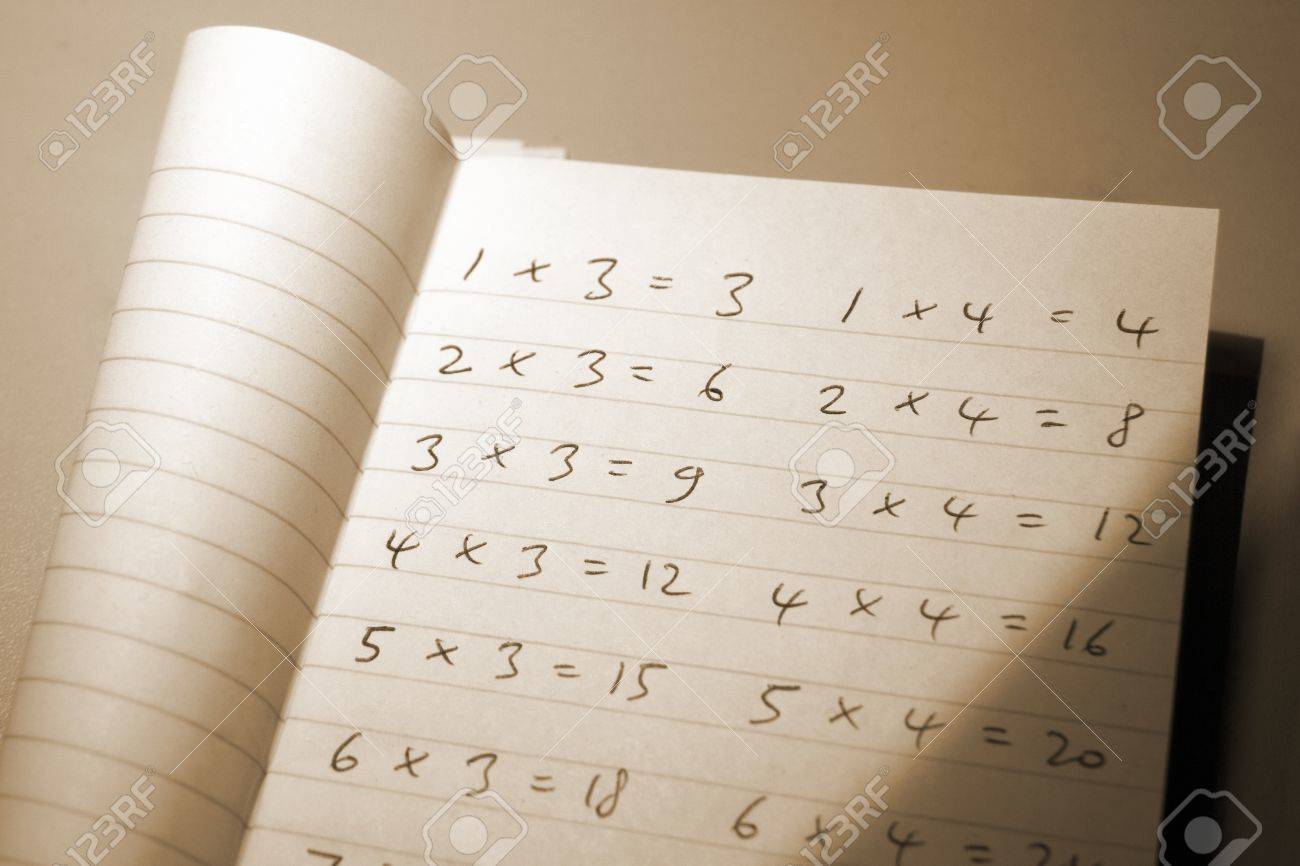 1 × 3 = 3 1 × 4 = 4
2 × 3 = 6 2 × 4 = 8
3 × 3 = 9 3 × 4 = 12
4 × 3 = 12 4 × 4 = 16
5 × 3 = 15 5 × 4 = 20
6 × 3 = 18 6 × 4 =
123RF
123RF
123RF
123RF
123RF
123RF